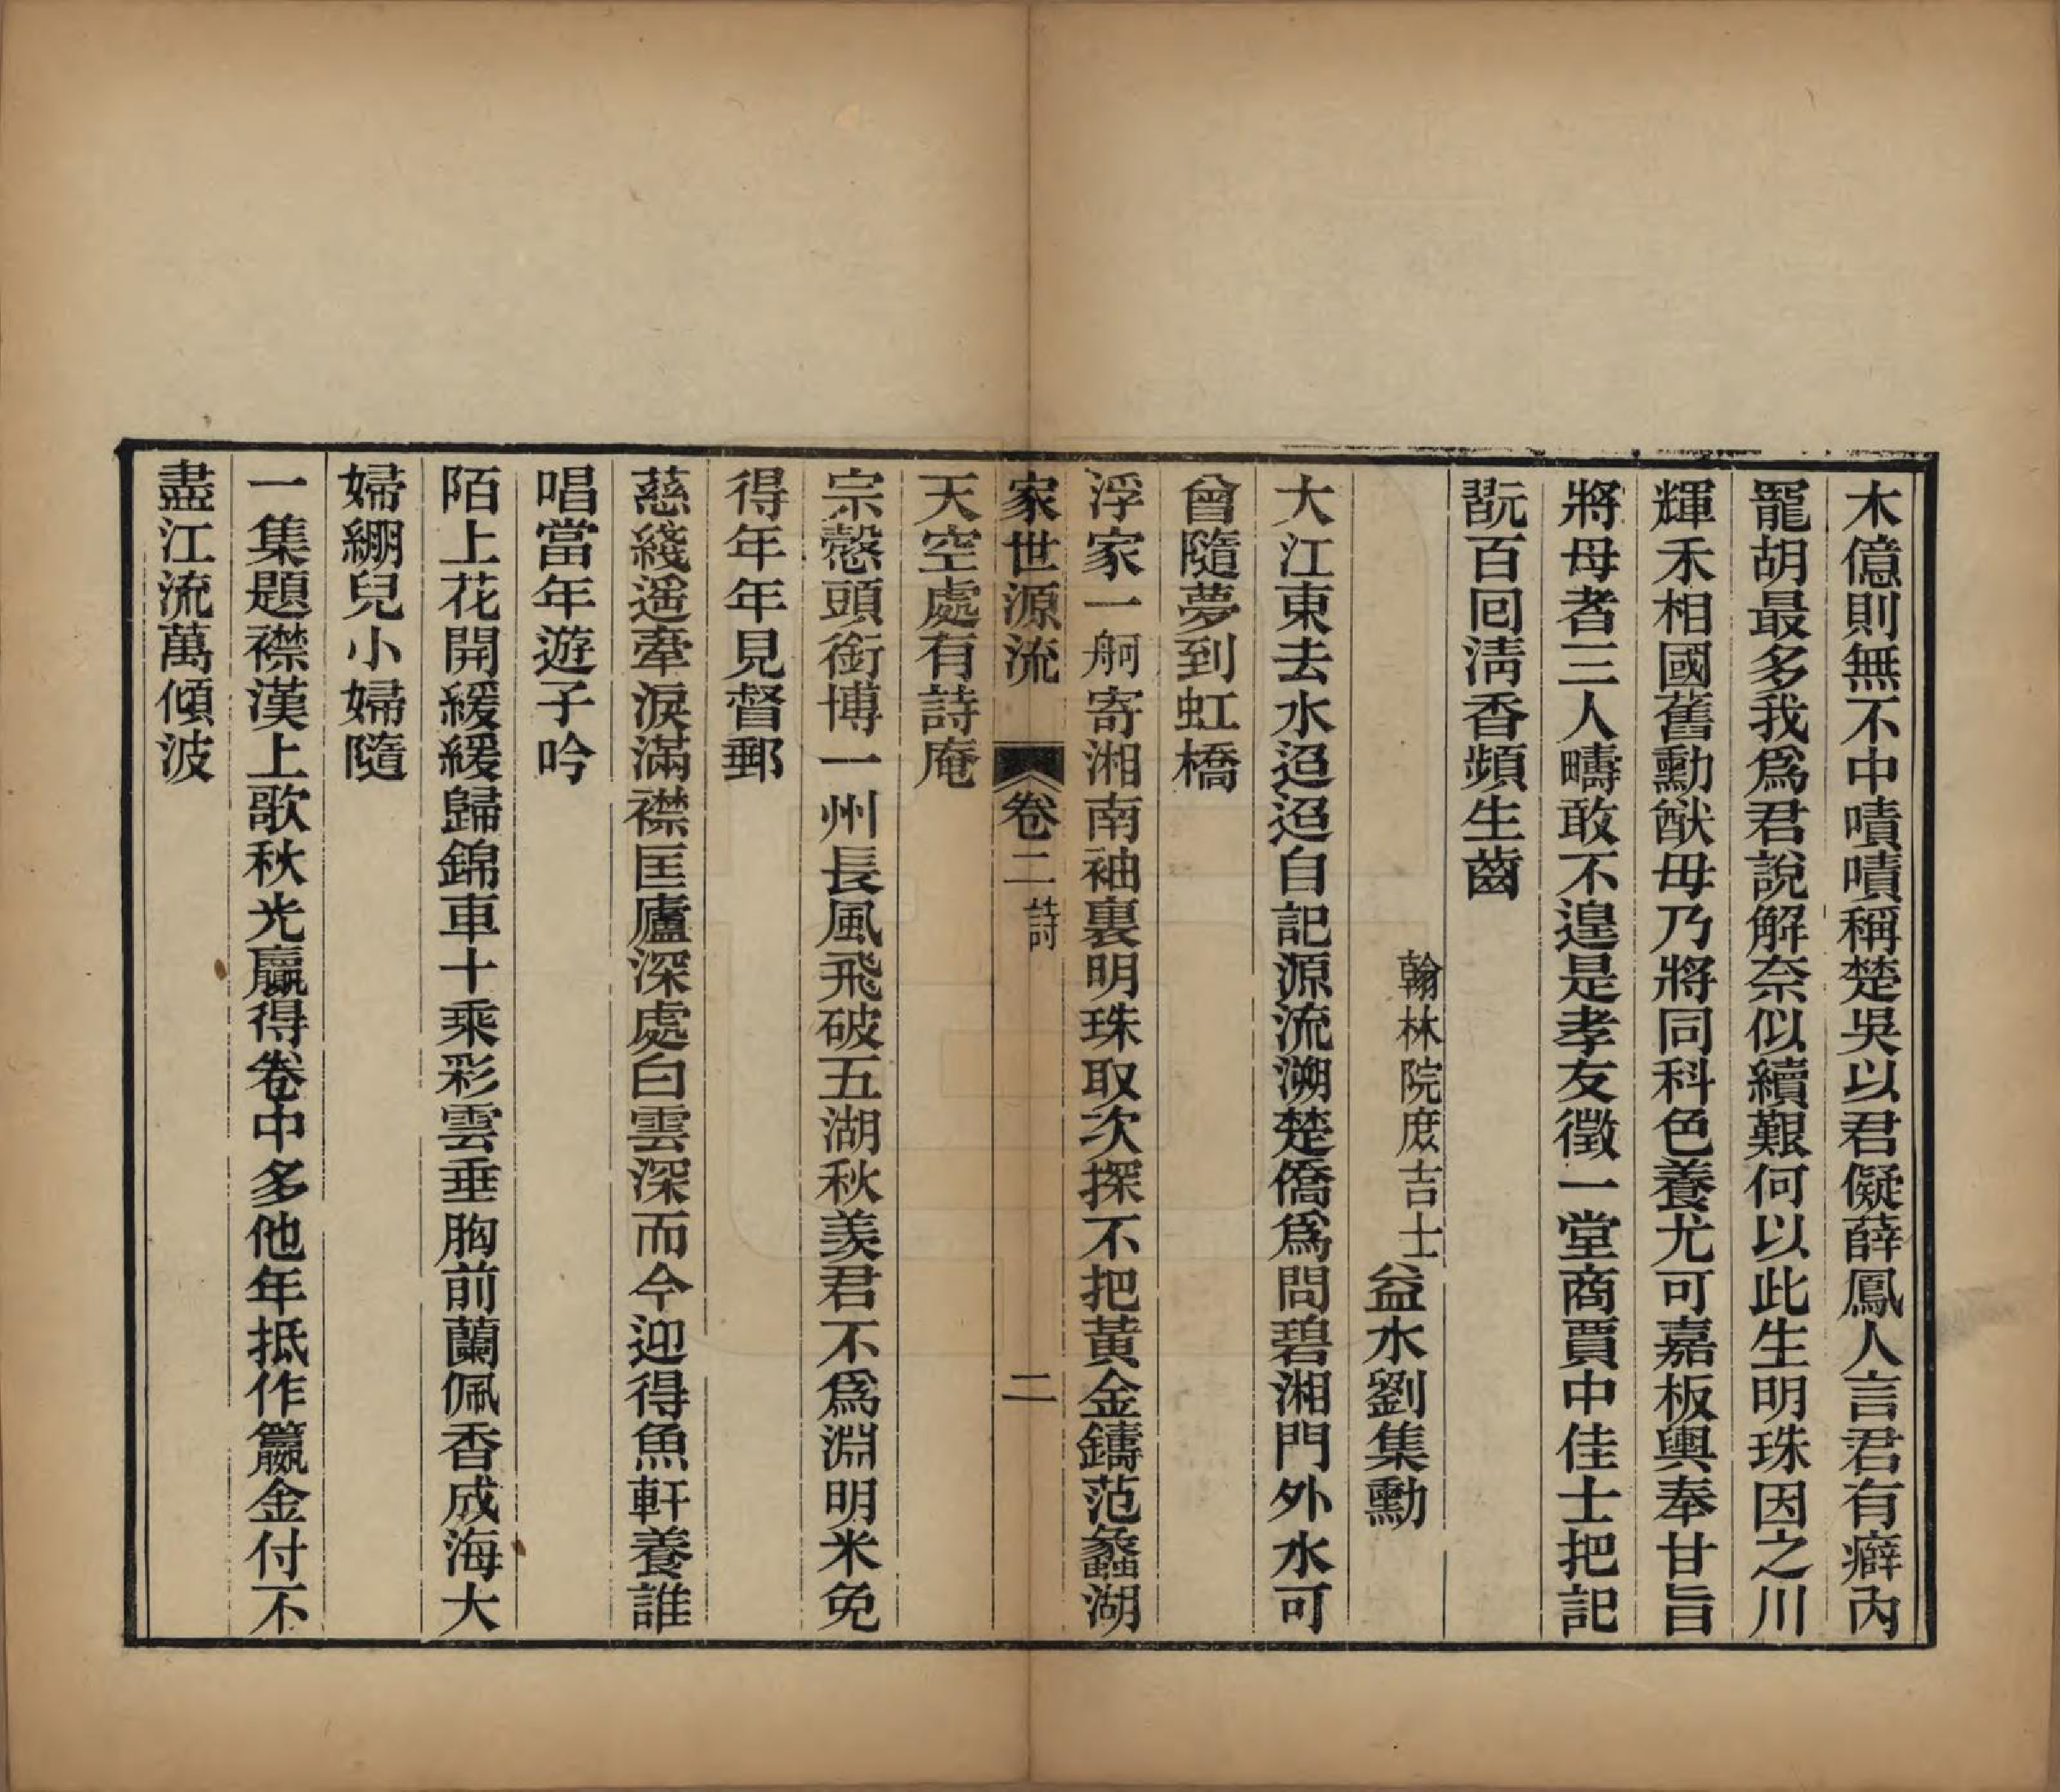 木億則無不中嘖嘖稱楚吳以君儗薛鳳人言君有癖內
罷胡最多我爲君說解奈似續艱何以此生明珠因之川
輝禾相國舊勳猷毋乃將同科色養尤可嘉板輿奉甘旨
將母者三人疇敢不遑是孝友徵一堂商賈中佳士把記
翫百回淸香頻生齒
翰林院庶吉士益水劉集勳
大江東去水迢迢自記源流溯楚僑爲問碧湘門外水可
曾隨夢到虹橋
浮家一舸寄湘南袖裏明珠取次探不把黃金鑄范蠡湖
家世源流 卷二 詩 二
天空處有詩庵
宗愨頭銜博一州長風飛破五湖秋羨君不爲淵明米免
得年年見督郵
慈綫遥牽淚滿襟匡廬深處白雲深而今迎得魚軒養誰
唱當年遊子吟
陌上花開緩緩歸錦車十乘彩雲垂胸前蘭佩香成海大
婦綳兒小婦隨
一集題襟漢上歌秋光贏得卷中多他年抵作籯金付不
盡江流萬傾波